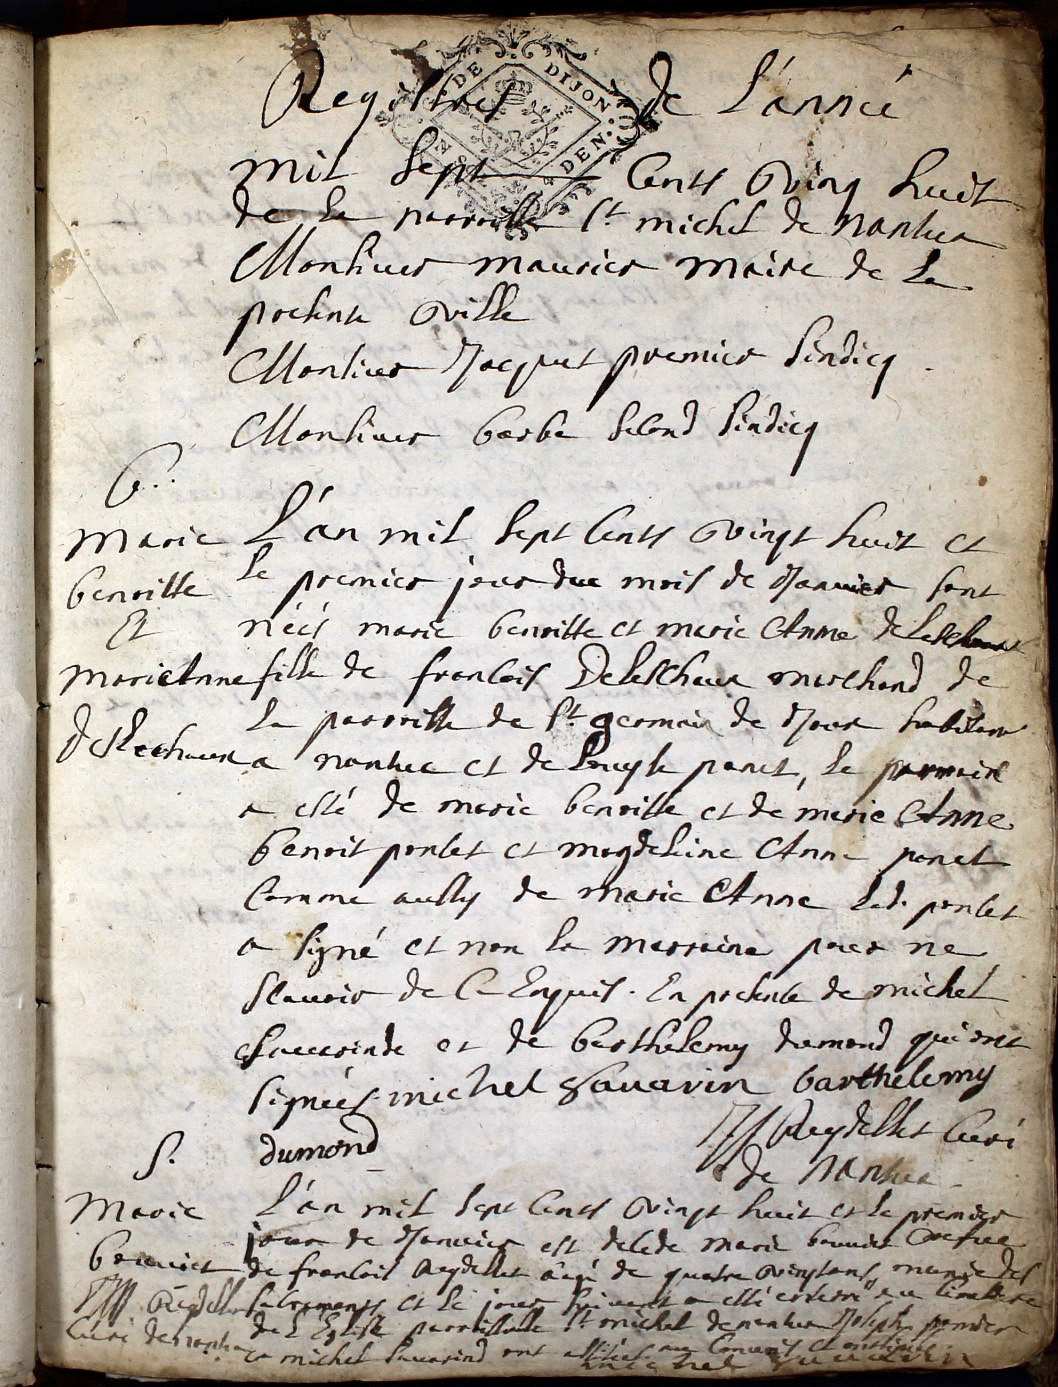 DE DIJON
DEN
Registres de L'année
mil sept Cents Vinq huit
de La parroisse St michel de nantua
Monsieur maurier maire de La
presente Ville
Monsieur Jacquet premier sindicq
Monsieur barbe second sindicq
B..
marie
benoitte
Et
marieAnne
L'an mil sept Cents Vingt huit et
le premier jour du mois de Janvier sont
néés marie benoitte et marie Anne
fille de francois Deleschaux marchand de
La parroisse de St germain de Joux habitant
a nantua et de panet, le parrain
a esté de marie benoitte et de marie Anne
benoit ponset et magdeleine Anne panet
Comme aussy de marie Anne Led. ponset
a signé et non la marraine pour ne
scavoir de Ce Enquis. En presente de michel
Savarin et de barthelemy dumond qui ont
signéés michel Savarin barthelemy
dumond
Reydellet Curé
de Nantua
S.
Marie
bouvier
L'an mil sept Cents Vingt huit et le premier
jour de Janvier est decede marie bouvier
de francois Reydellet âgé de quatre Vingts ans munie des
Sacrements et le jour suivant a esté enterré au cimetiere
de L'Eglise parroissialle St michel de nantua Joseph
et michel Savarind ont assistés au Convois
michel Savarin
Reydellet
Curé de nantua